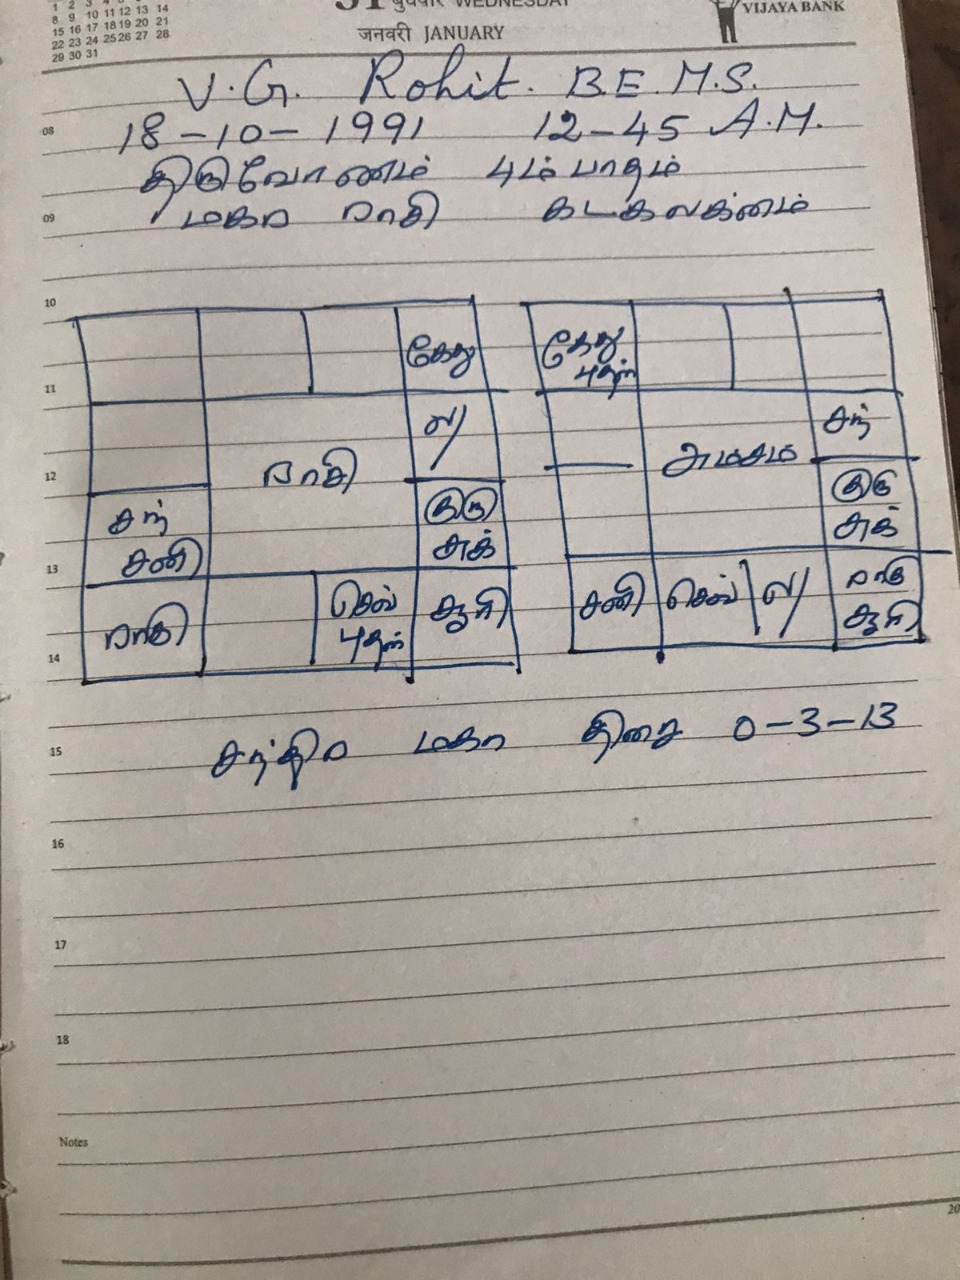 1 2 3 4 5 6 7
8 9 10 11 12 13 14
15 16 17 18 19 20 21
22 23 24 25 26 27 28
29 30 31
31 बुधवार WEDNESDAY
जनवरी JANUARY
VIJAYA BANK
V.G. Rohit. B.E. M.S.
08 18-10-1991 12-45 A.M.
திருவோணம் 4ம் பாதம்
09 மகர ராசி கடகலக்னம்
10
கேது கேது
புதன்
11
ல/ சந்
12 ராசி அம்சம்
சந் குரு குரு
சனி சுக் சுக்
13
ராகு செவ் சூரி சனி செவ் ல/ ராகு
புதன் சூரி
14
சந்திர மகா திசை 0-3-13
15
16
17
18
Notes
20